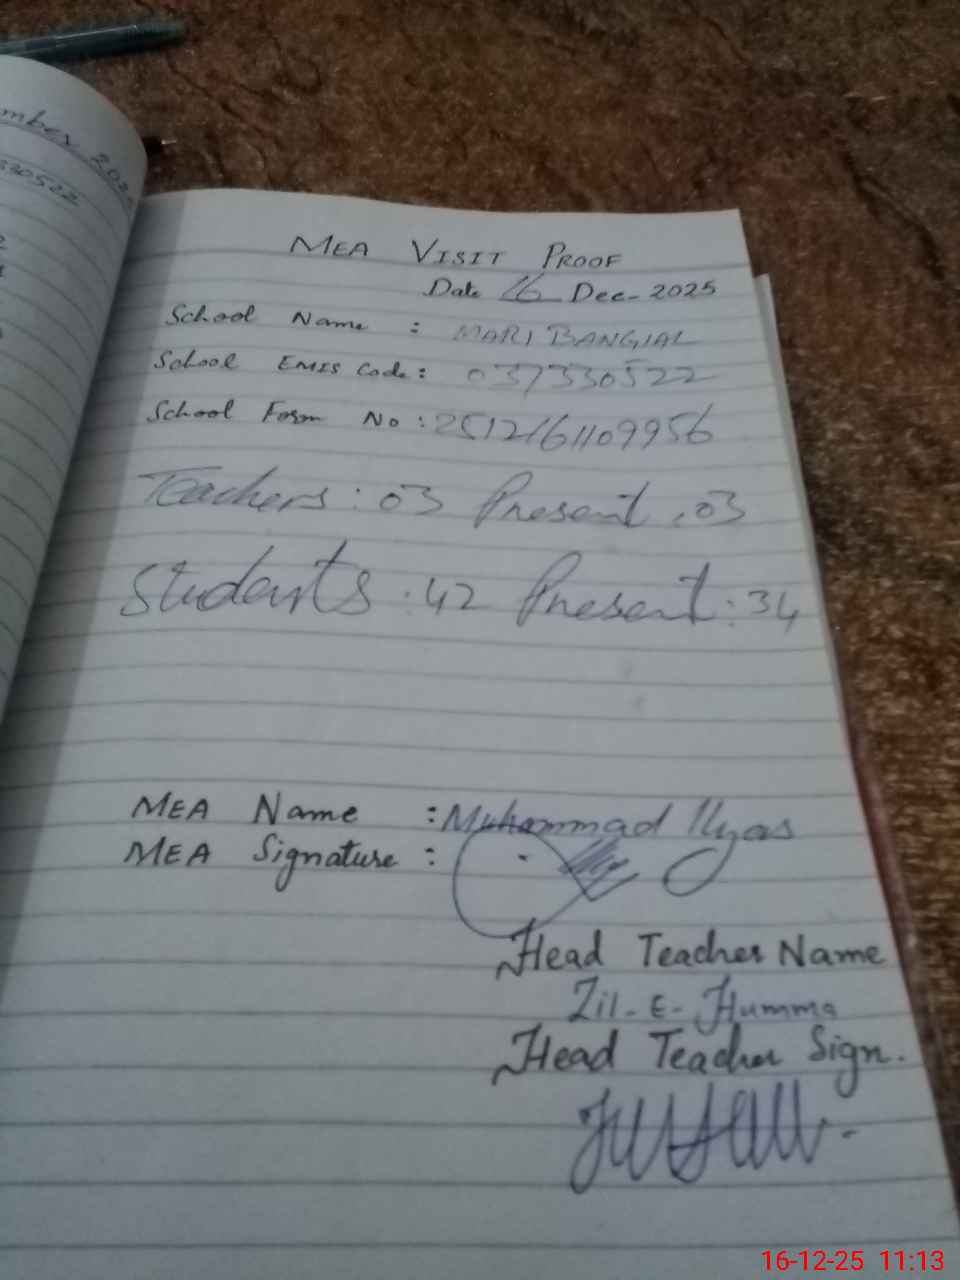 330522
MEA VISIT PROOF
Date 16 Dec-2025
School Name : MARI BANGIAL
School EMIS Code: 037330522
School Form No : 2512161109956
Teachers : 03 Present : 03
Students : 42 Present : 34
MEA Name : Muhammad Ilyas
MEA Signature :
Head Teacher Name
Zil-E-Humma
Head Teacher Sign.
16-12-25 11:13